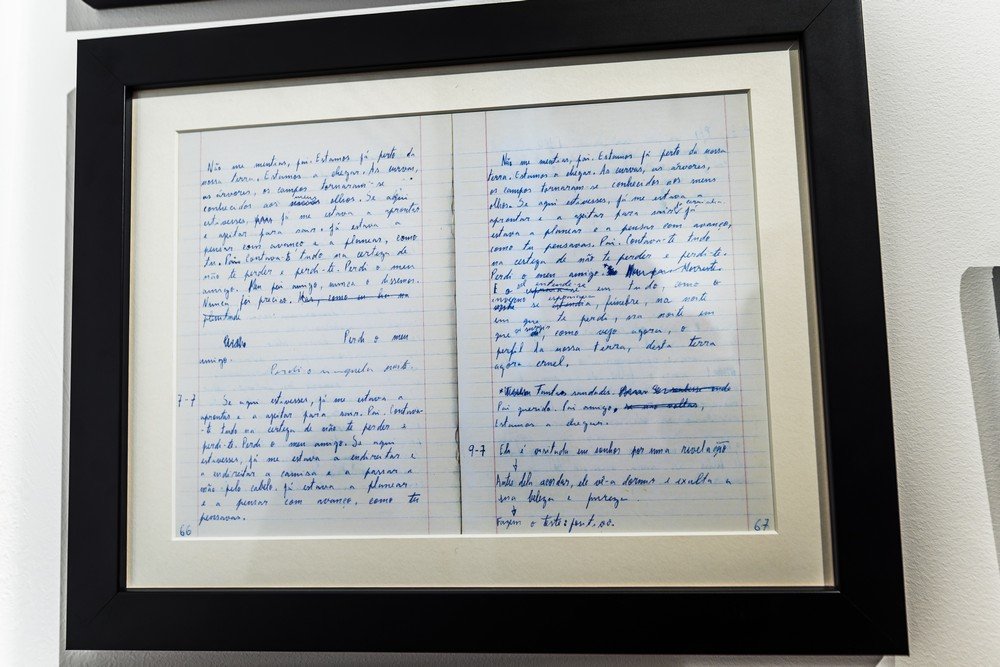 Não me mentias, pai. Estamos já perto da
nossa terra. Estamos a chegar. As curvas,
as árvores, os campos tornaram-se
conhecidos aos meus olhos. Se aqui
estivesses, já me estava a aprontar
e a ajeitar para sair. Já estava a
pensar com avanço e a planear, como
tu. Pai. Contava-te tudo na certeza de
não te perder e perdi-te. Perdi o meu
amigo. foi amigo, nunca o dissemos.
Nunca foi preciso. Mas, como eu
Perdi o meu
amigo.
Perdi o naquela noite.
7-7 Se aqui estivesses, já me estava a
aprontar e a ajeitar para sair. Pai. Contava-
-te tudo na certeza de não te perder e
perdi-te. Perdi o meu amigo. Se aqui
estivesses, já me estava a endireitar e
a endireitar a camisa e a passar a
mão pelo cabelo. Já estava a planear
e a pensar com avanço, como tu
pensavas.
66
Não me mentias, pai. Estamos já perto da nossa
terra. Estamos a chegar. As curvas, as árvores,
os campos tornaram-se conhecidos aos meus
olhos. Se aqui estivesses, já me estava a
aprontar e a ajeitar para sair. Já
estava a planear e a pensar com avanço,
como tu pensavas. Pai. Contava-te tudo
na certeza de não te perder e perdi-te.
Perdi o meu amigo.
E o entende-se em tudo, como o
inverno se fúnebre, na noite
em que te perdi, na noite em
que, como vejo agora, o
perfil da nossa terra, desta terra
agora cruel.
Tantas saudades.
Pai querido. Pai amigo,
Estamos a chegar.
9-7 Ela é visitada em sonhos por uma revelação
Antes dela acordar, ele vê-a dormir e exalta a
sua beleza e pureza.
Fazem o teste:
67